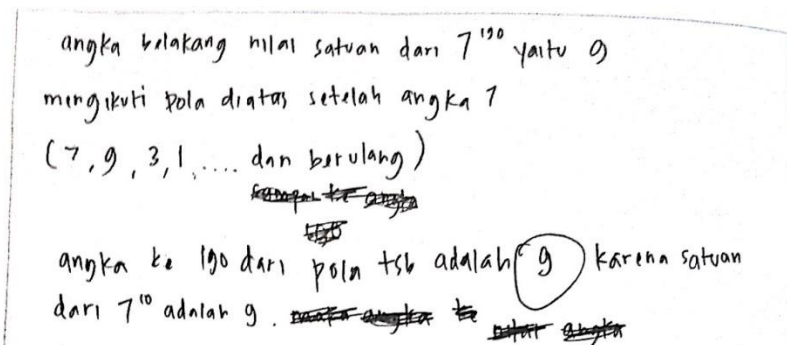 angka belakang nilai satuan dari 7¹⁹⁰ yaitu 9
mengikuti pola diatas setelah angka 7
(7, 9, 3, 1, .... dan berulang)
angka ke 190 dari pola tsb adalah 9 karena satuan
dari 7¹⁰ adalah 9.